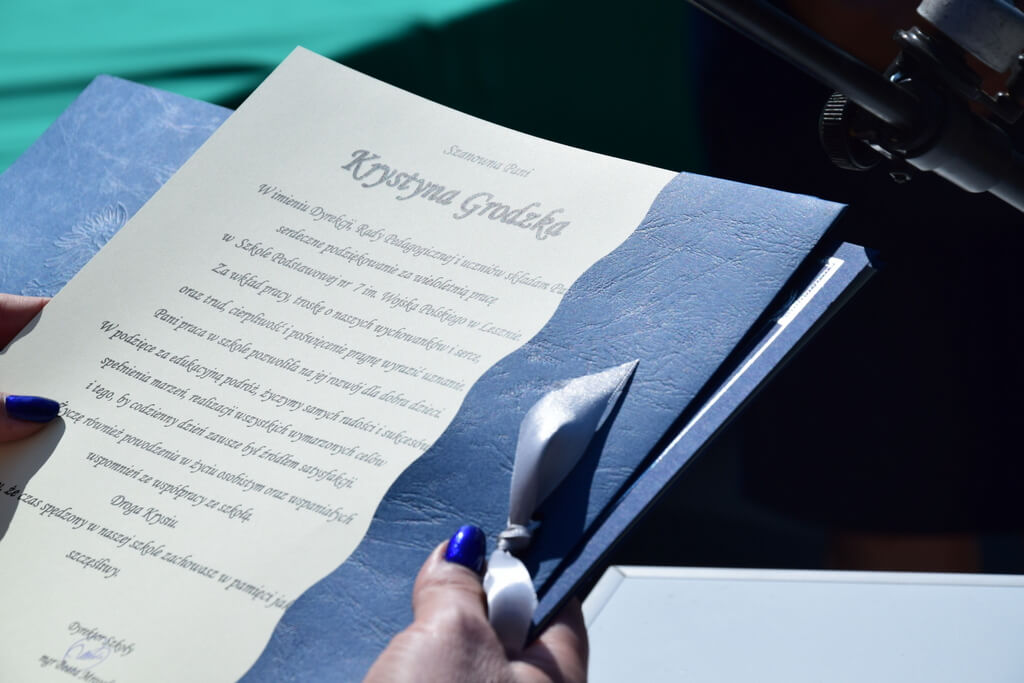 Szanowna Pani
Krystyna Grodzka
W imieniu Dyrekcji, Rady Pedagogicznej i uczniów składam Pa
serdeczne podziękowanie za wieloletnią pracę
w Szkole Podstawowej nr 7 im. Wojska Polskiego w Lesznie.
Za wkład pracy, troskę o naszych wychowanków i serce,
oraz trud, cierpliwość i poświęcenie pragnę wyrazić uznanie.
Pani praca w szkole pozwoliła na jej rozwój dla dobra dzieci.
W podzięce za edukacyjną podróż, życzymy samych radości i sukcesów
spełnienia marzeń, realizacji wszystkich wymarzonych celów
i tego, by codzienny dzień zawsze był źródłem satysfakcji.
Życzę również powodzenia w życiu osobistym oraz wspaniałych
wspomnień ze współpracy ze szkołą.
Droga Krysiu,
że czas spędzony w naszej szkole zachowasz w pamięci jak
szczęśliwy.
Dyrektor Szkoły
mgr Beata